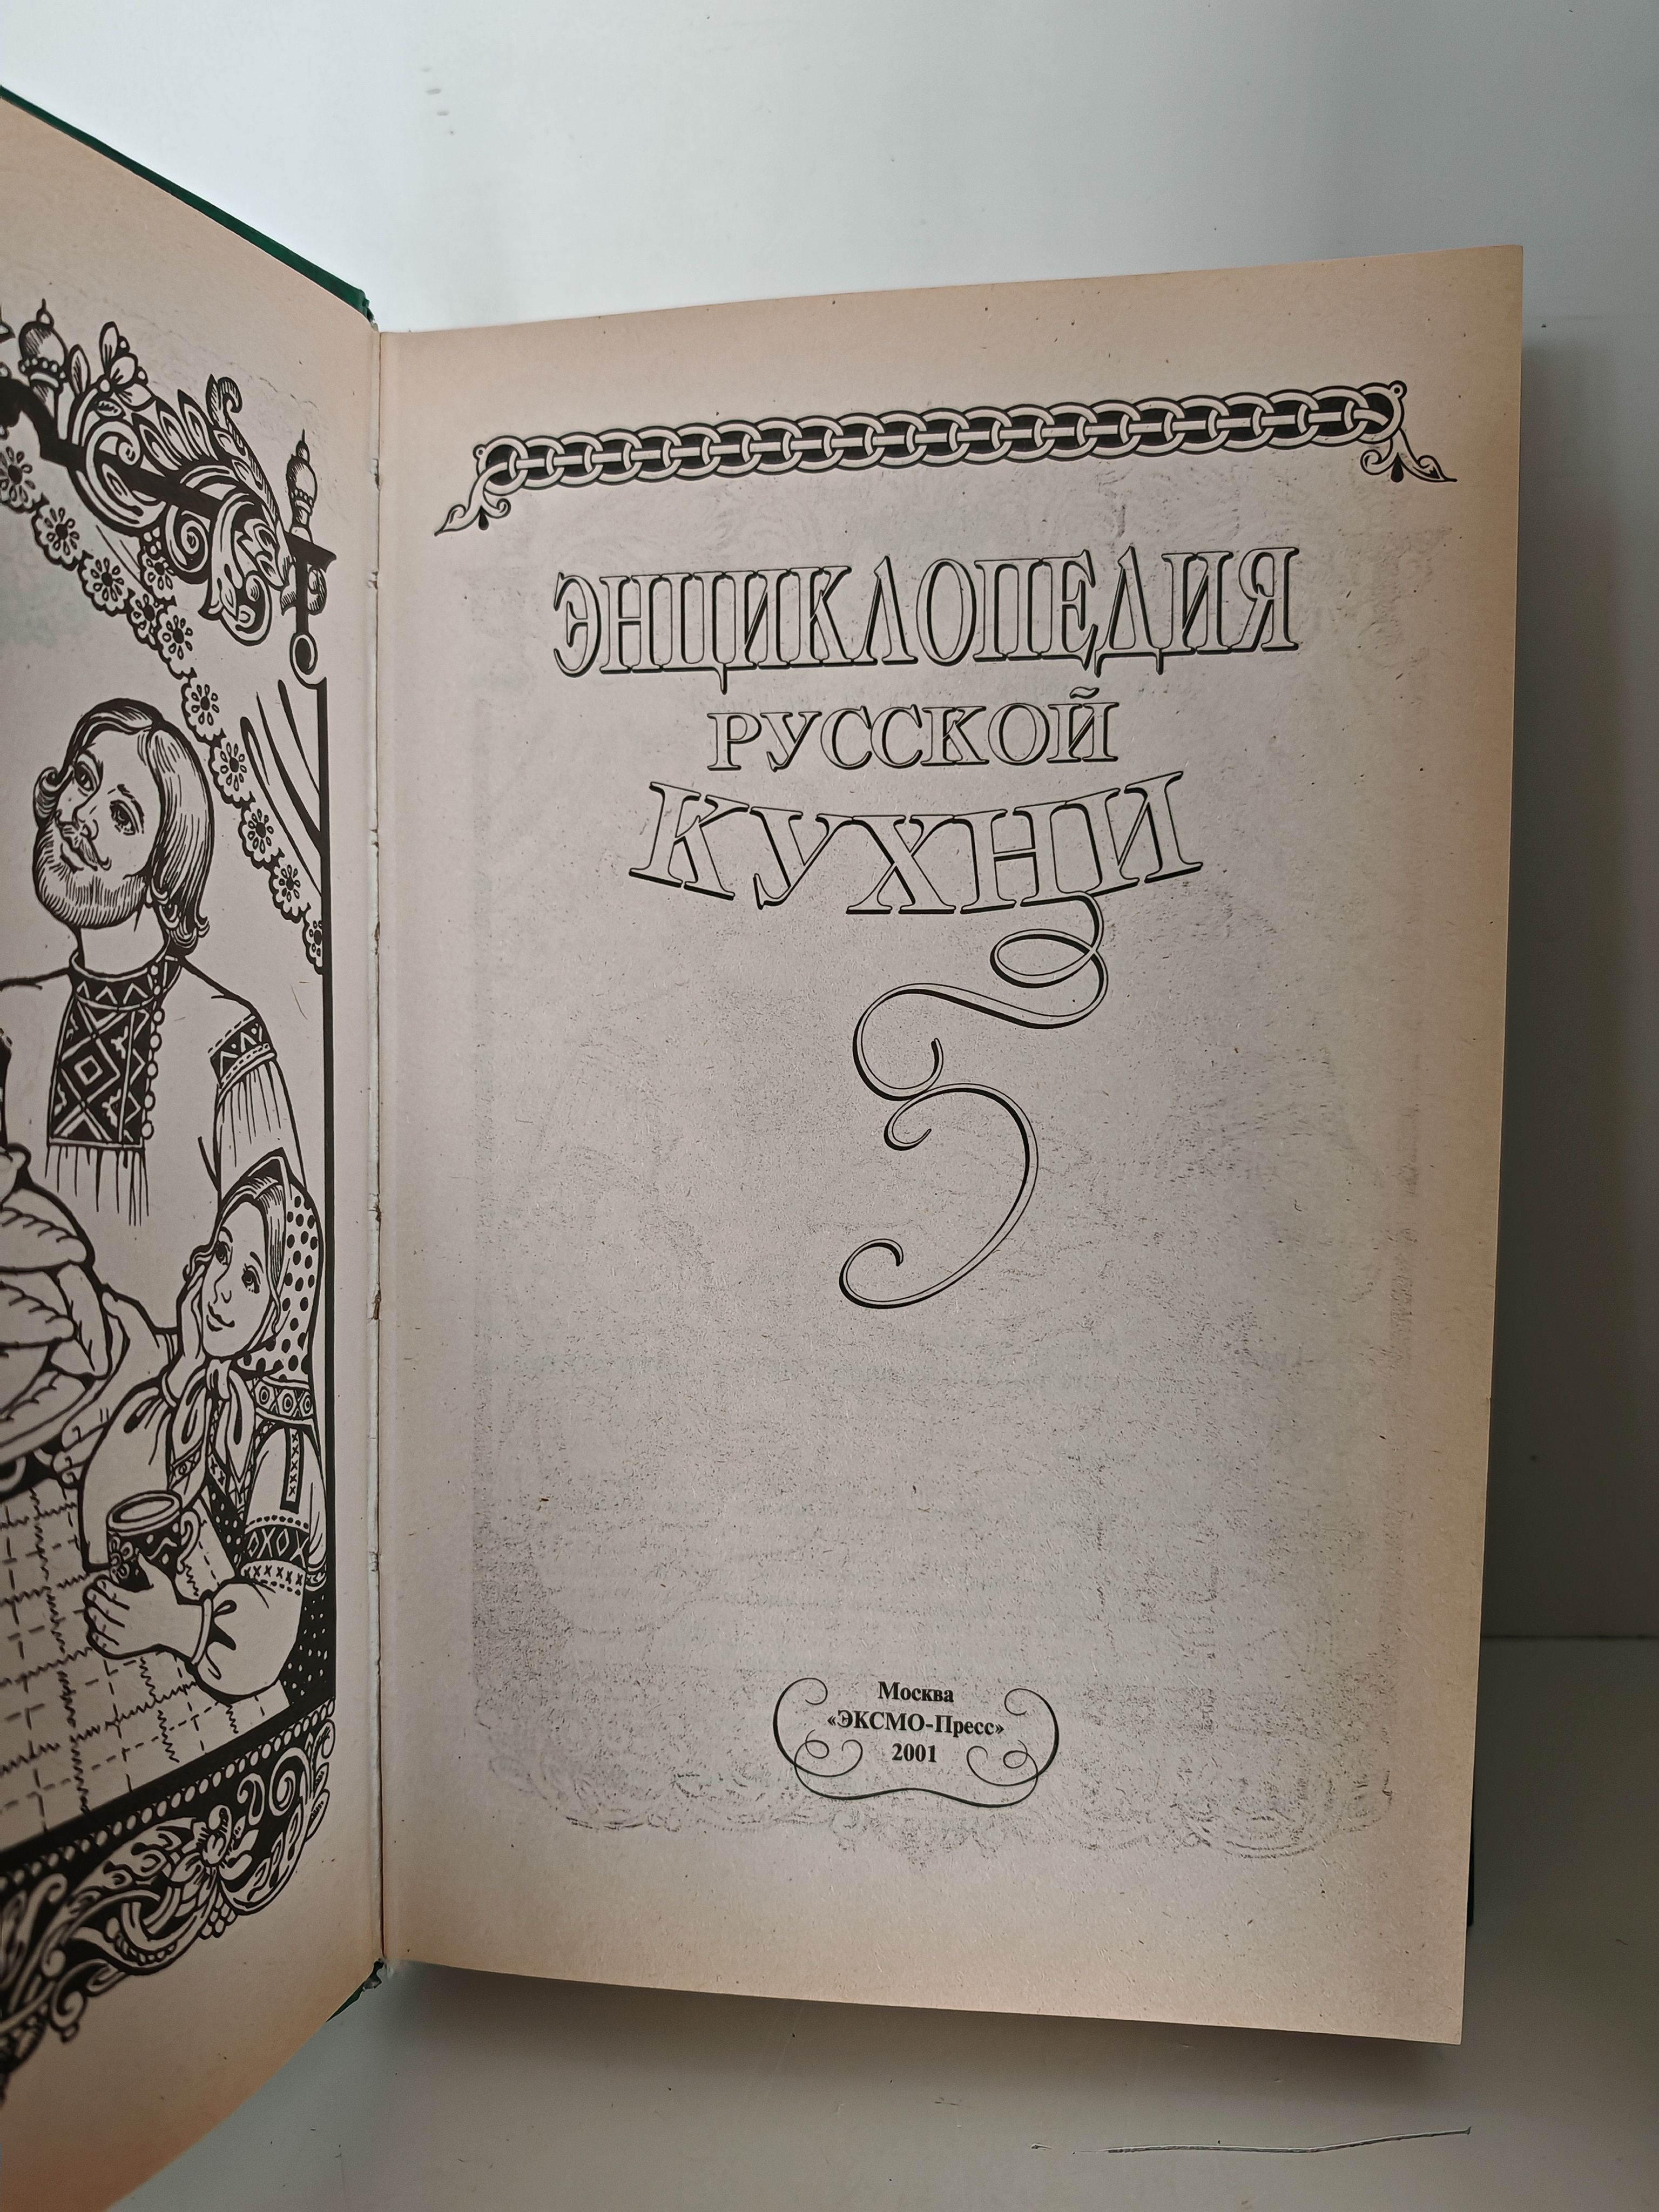 ЭНЦИКЛОПЕДИЯ
РУССКОЙ
КУХНИ
Москва
«ЭКСМО-Пресс»
2001